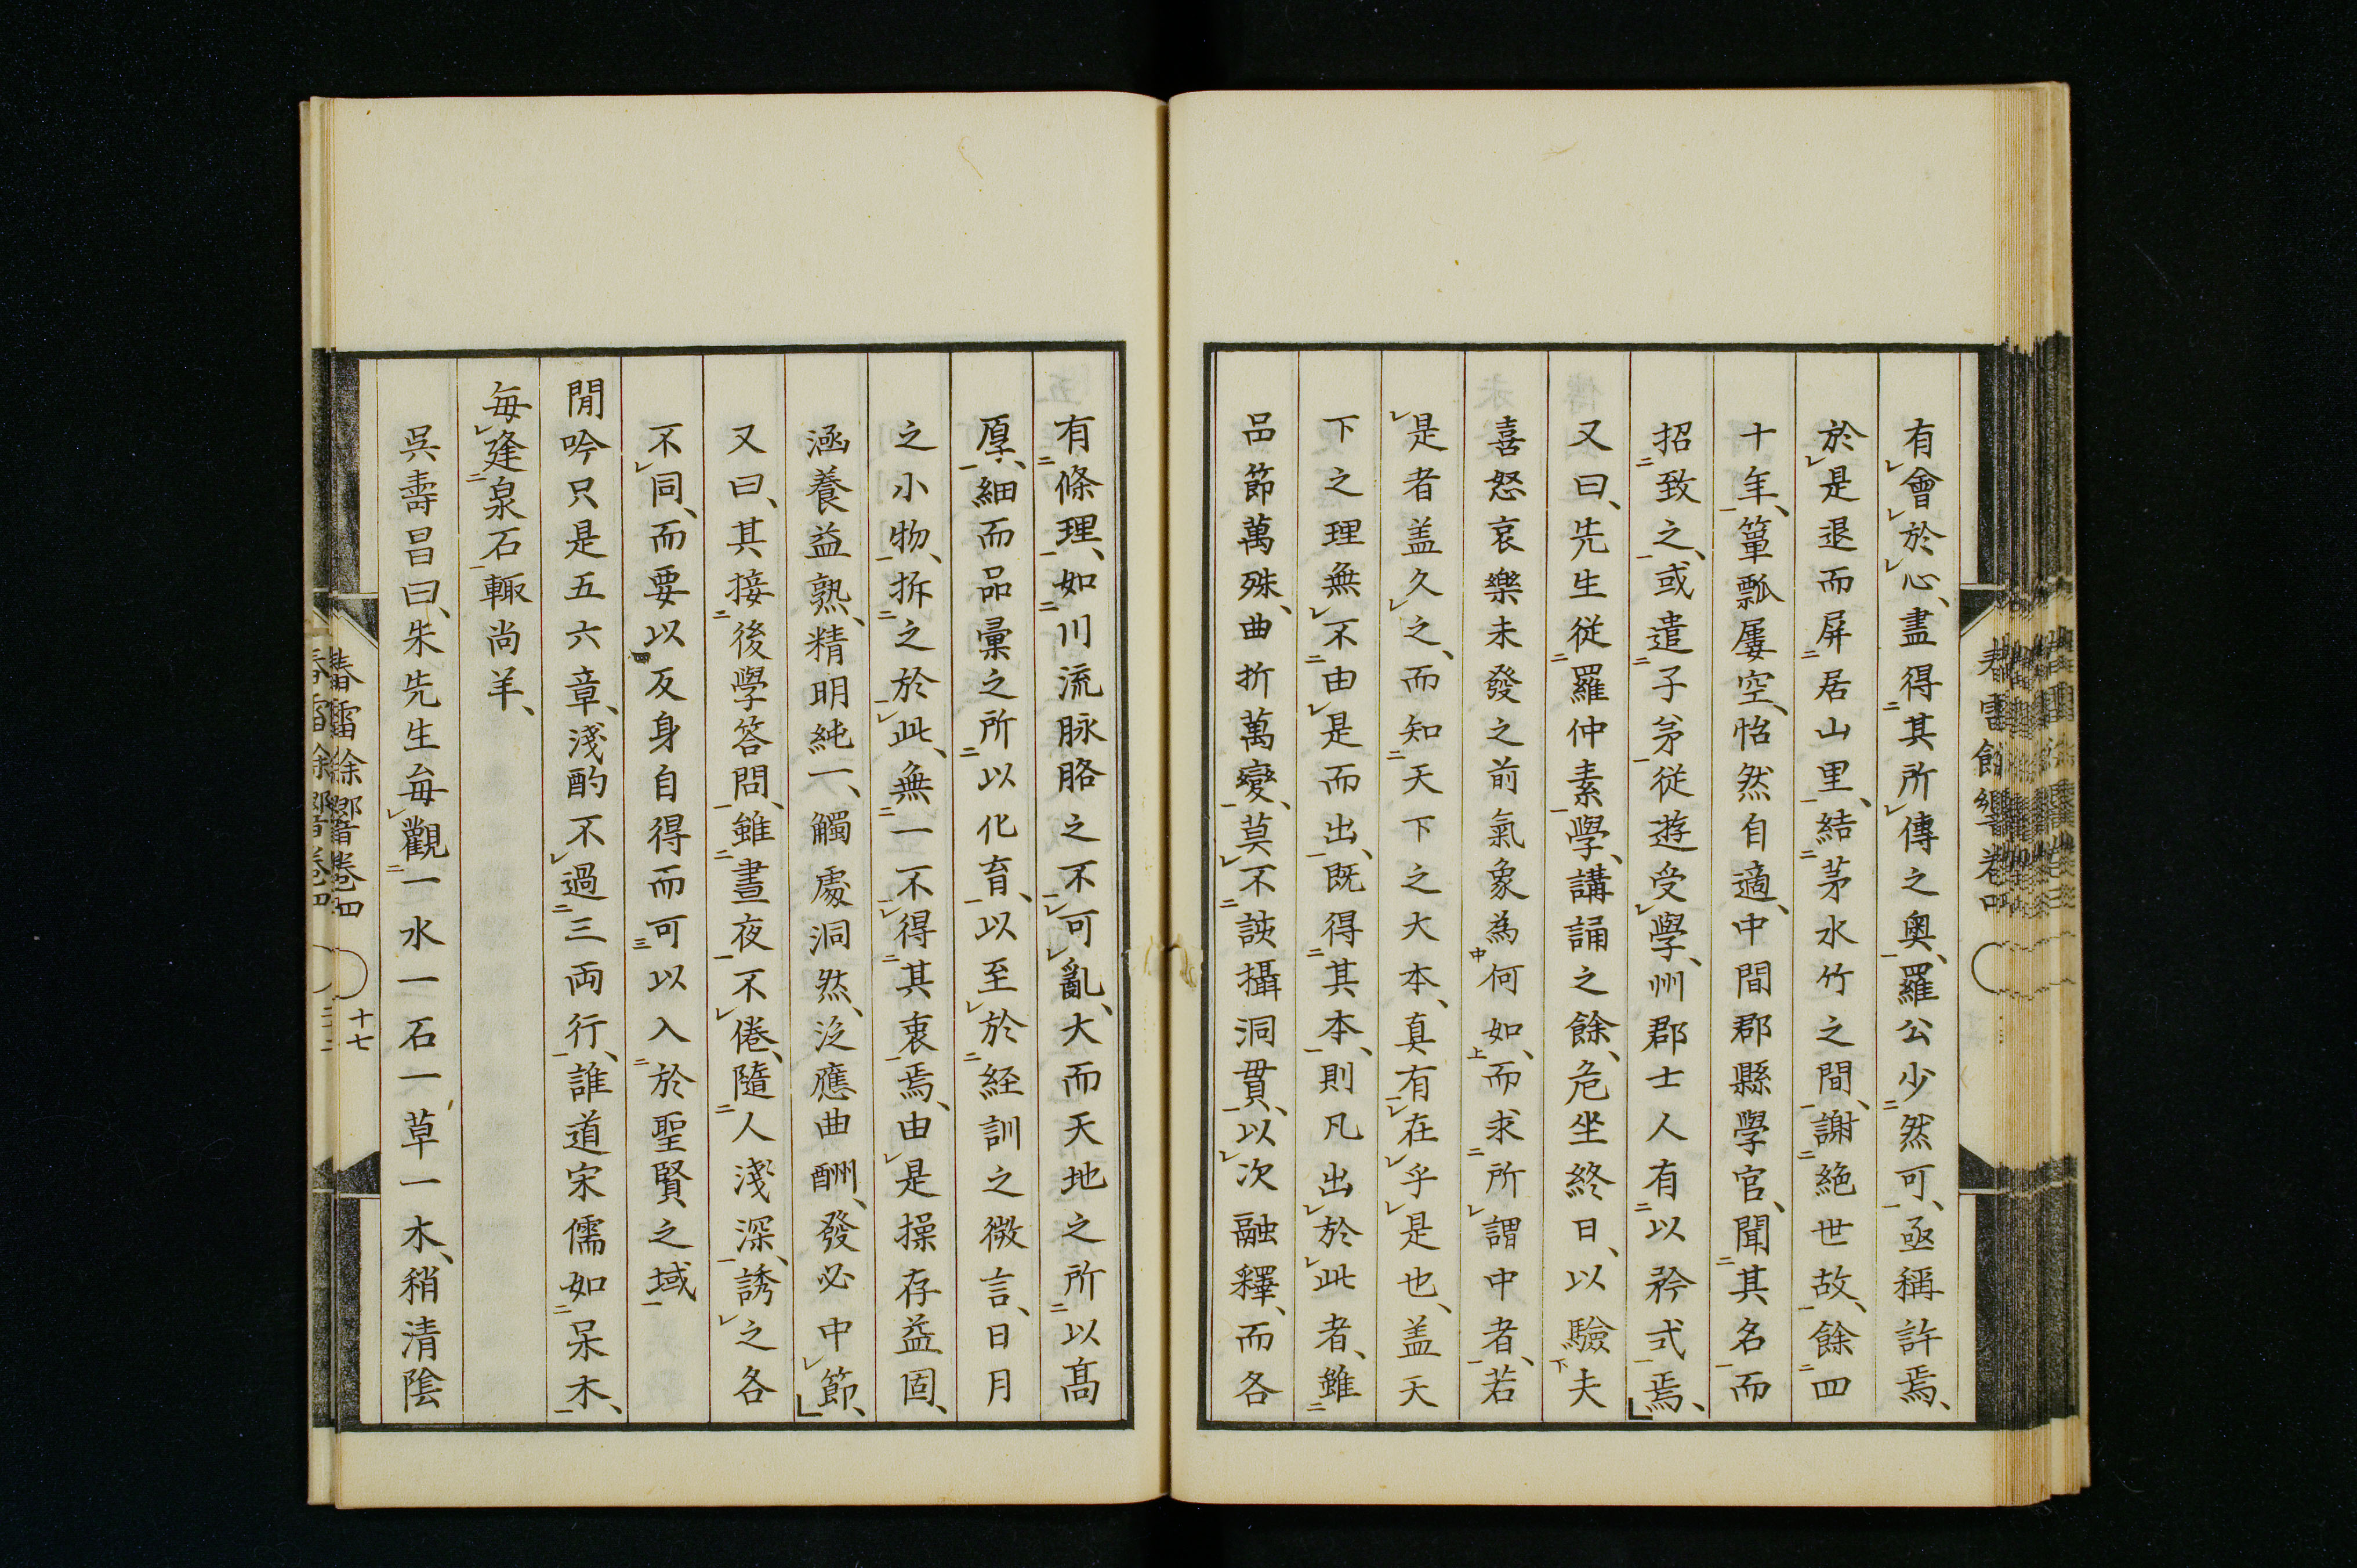 有會於心、盡得其所傳之奧、羅公少然可、亟稱許焉、
於是退而屏居山里、結茅水竹之間、謝絕世故、餘四
十年、簞瓢屢空、怡然自適、中間郡縣學官、聞其名而
招致之、或遣子弟從遊受學、州郡士人有以矜式焉、
又曰、先生從羅仲素學、講誦之餘、危坐終日、以驗夫
喜怒哀樂未發之前氣象為何如、而求所謂中者、若
是者盖久之、而知天下之大本、真有在乎是也、盖天
下之理無不由是而出、既得其本、則凡出於此者、雖
品節萬殊、曲折萬變、莫不該攝洞貫、以次融釋、而各
有條理、如川流脉胳之不可亂、大而天地之所以高
厚、細而品彙之所以化育、以至於経訓之微言、日月
之小物、拆之於此、無一不得其衷焉、由是操存益固、
涵養益熟、精明純一、觸處洞然、泛應曲酬、發必中節、
又曰、其接後學答問、雖晝夜不倦、隨人淺深、誘之各
不同、而要以反身自得而可以入於聖賢之域
閒吟只是五六章、淺酌不過三両行、誰道宋儒如呆木、
每逢泉石輙尚羊、
吳壽昌曰、朱先生每觀一水一石一草一木、稍清陰
卷四
十七